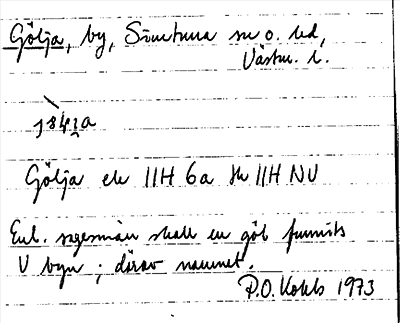 Gölja, by, Simtuna sn o. hd,
Västm. l.
jö̀lja
Gölja ek 11H 6a tk 11H NV
Enl. sagesmän skall en göl funnits
V byn; därav namnet.
P.O. 1973